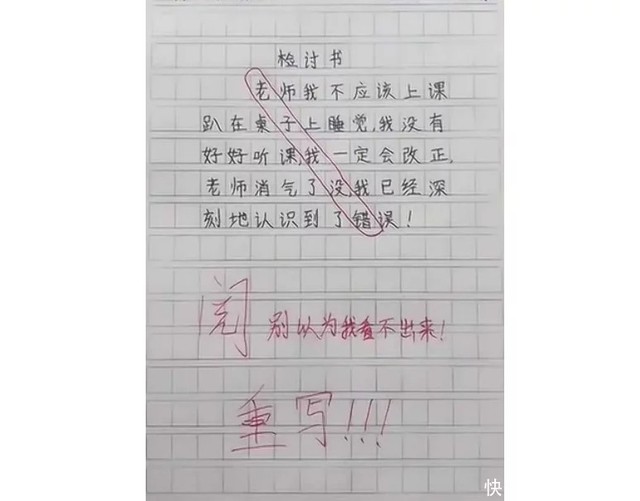 检讨书
老师我不应该上课
趴在桌子上睡觉,我没有
好好听课,我一定会改正.
老师消气了没,我已经深
刻地认识到了错误!
阅 别以为我看不出来!
重写!!!
快